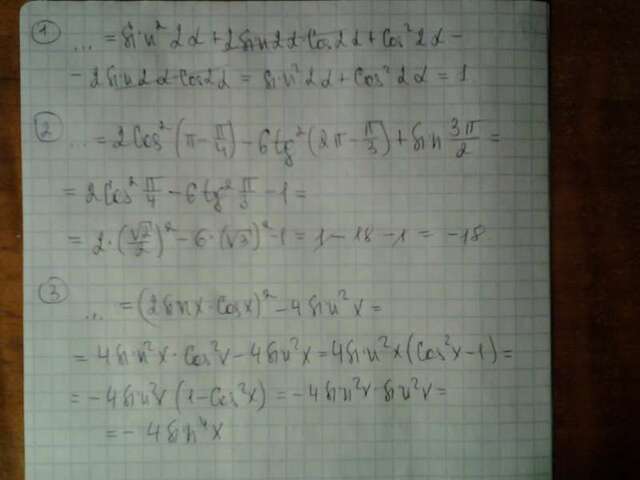 ① ... = sin² 2α + 2 sin 2α · cos 2α + cos² 2α −
− 2 sin 2α · cos 2α = sin² 2α + cos² 2α = 1
② ... = 2 cos² (π − π/4) − 6 tg² (2π − π/3) + sin 3π/2 =
= 2 cos² π/4 − 6 tg² π/3 − 1 =
= 2 · (√2/2)² − 6 · (√3)² − 1 = 1 − 18 − 1 = −18
③ ... = (2 sin x · cos x)² − 4 sin² x =
= 4 sin² x · cos² x − 4 sin² x = 4 sin² x (cos² x − 1) =
= − 4 sin² x (1 − cos² x) = − 4 sin² x · sin² x =
= − 4 sin⁴ x